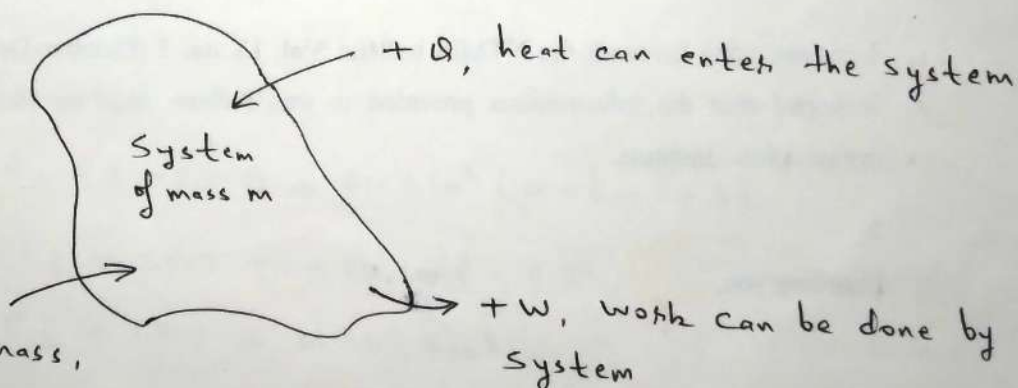 + Q, heat can enter the system
System
of mass m
+ W, work can be done by
system
mass,